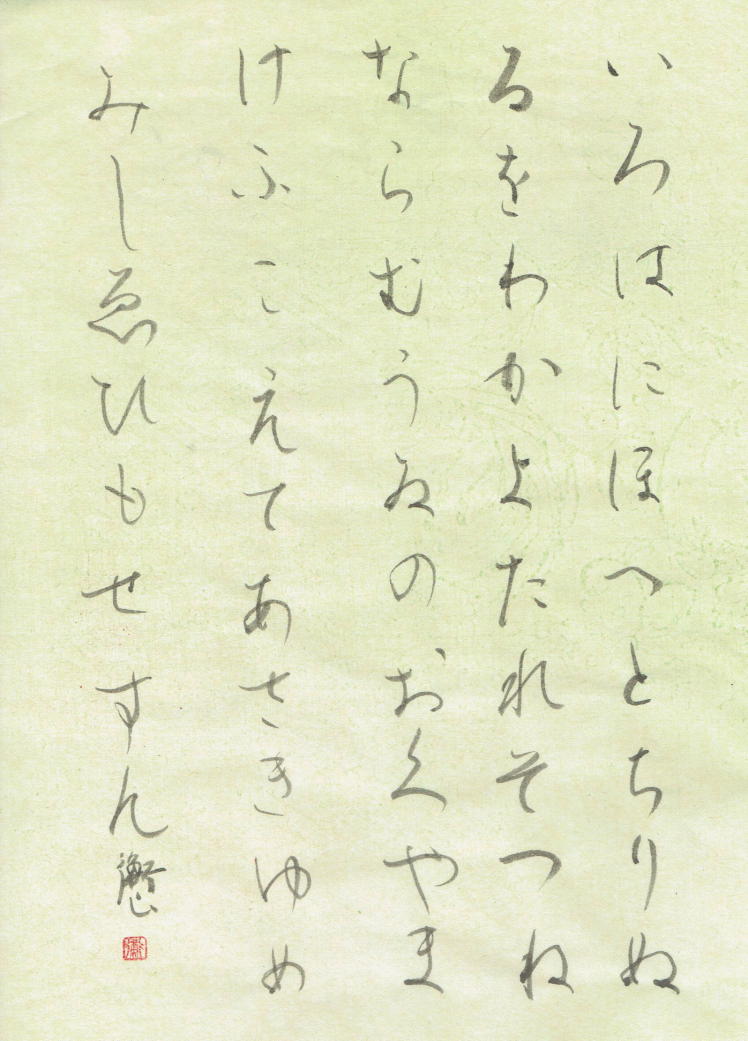 いろはにほへとちりぬ
るをわかよたれそつね
ならむうゐのおくやま
けふこえてあさきゆめ
みしゑひもせすん